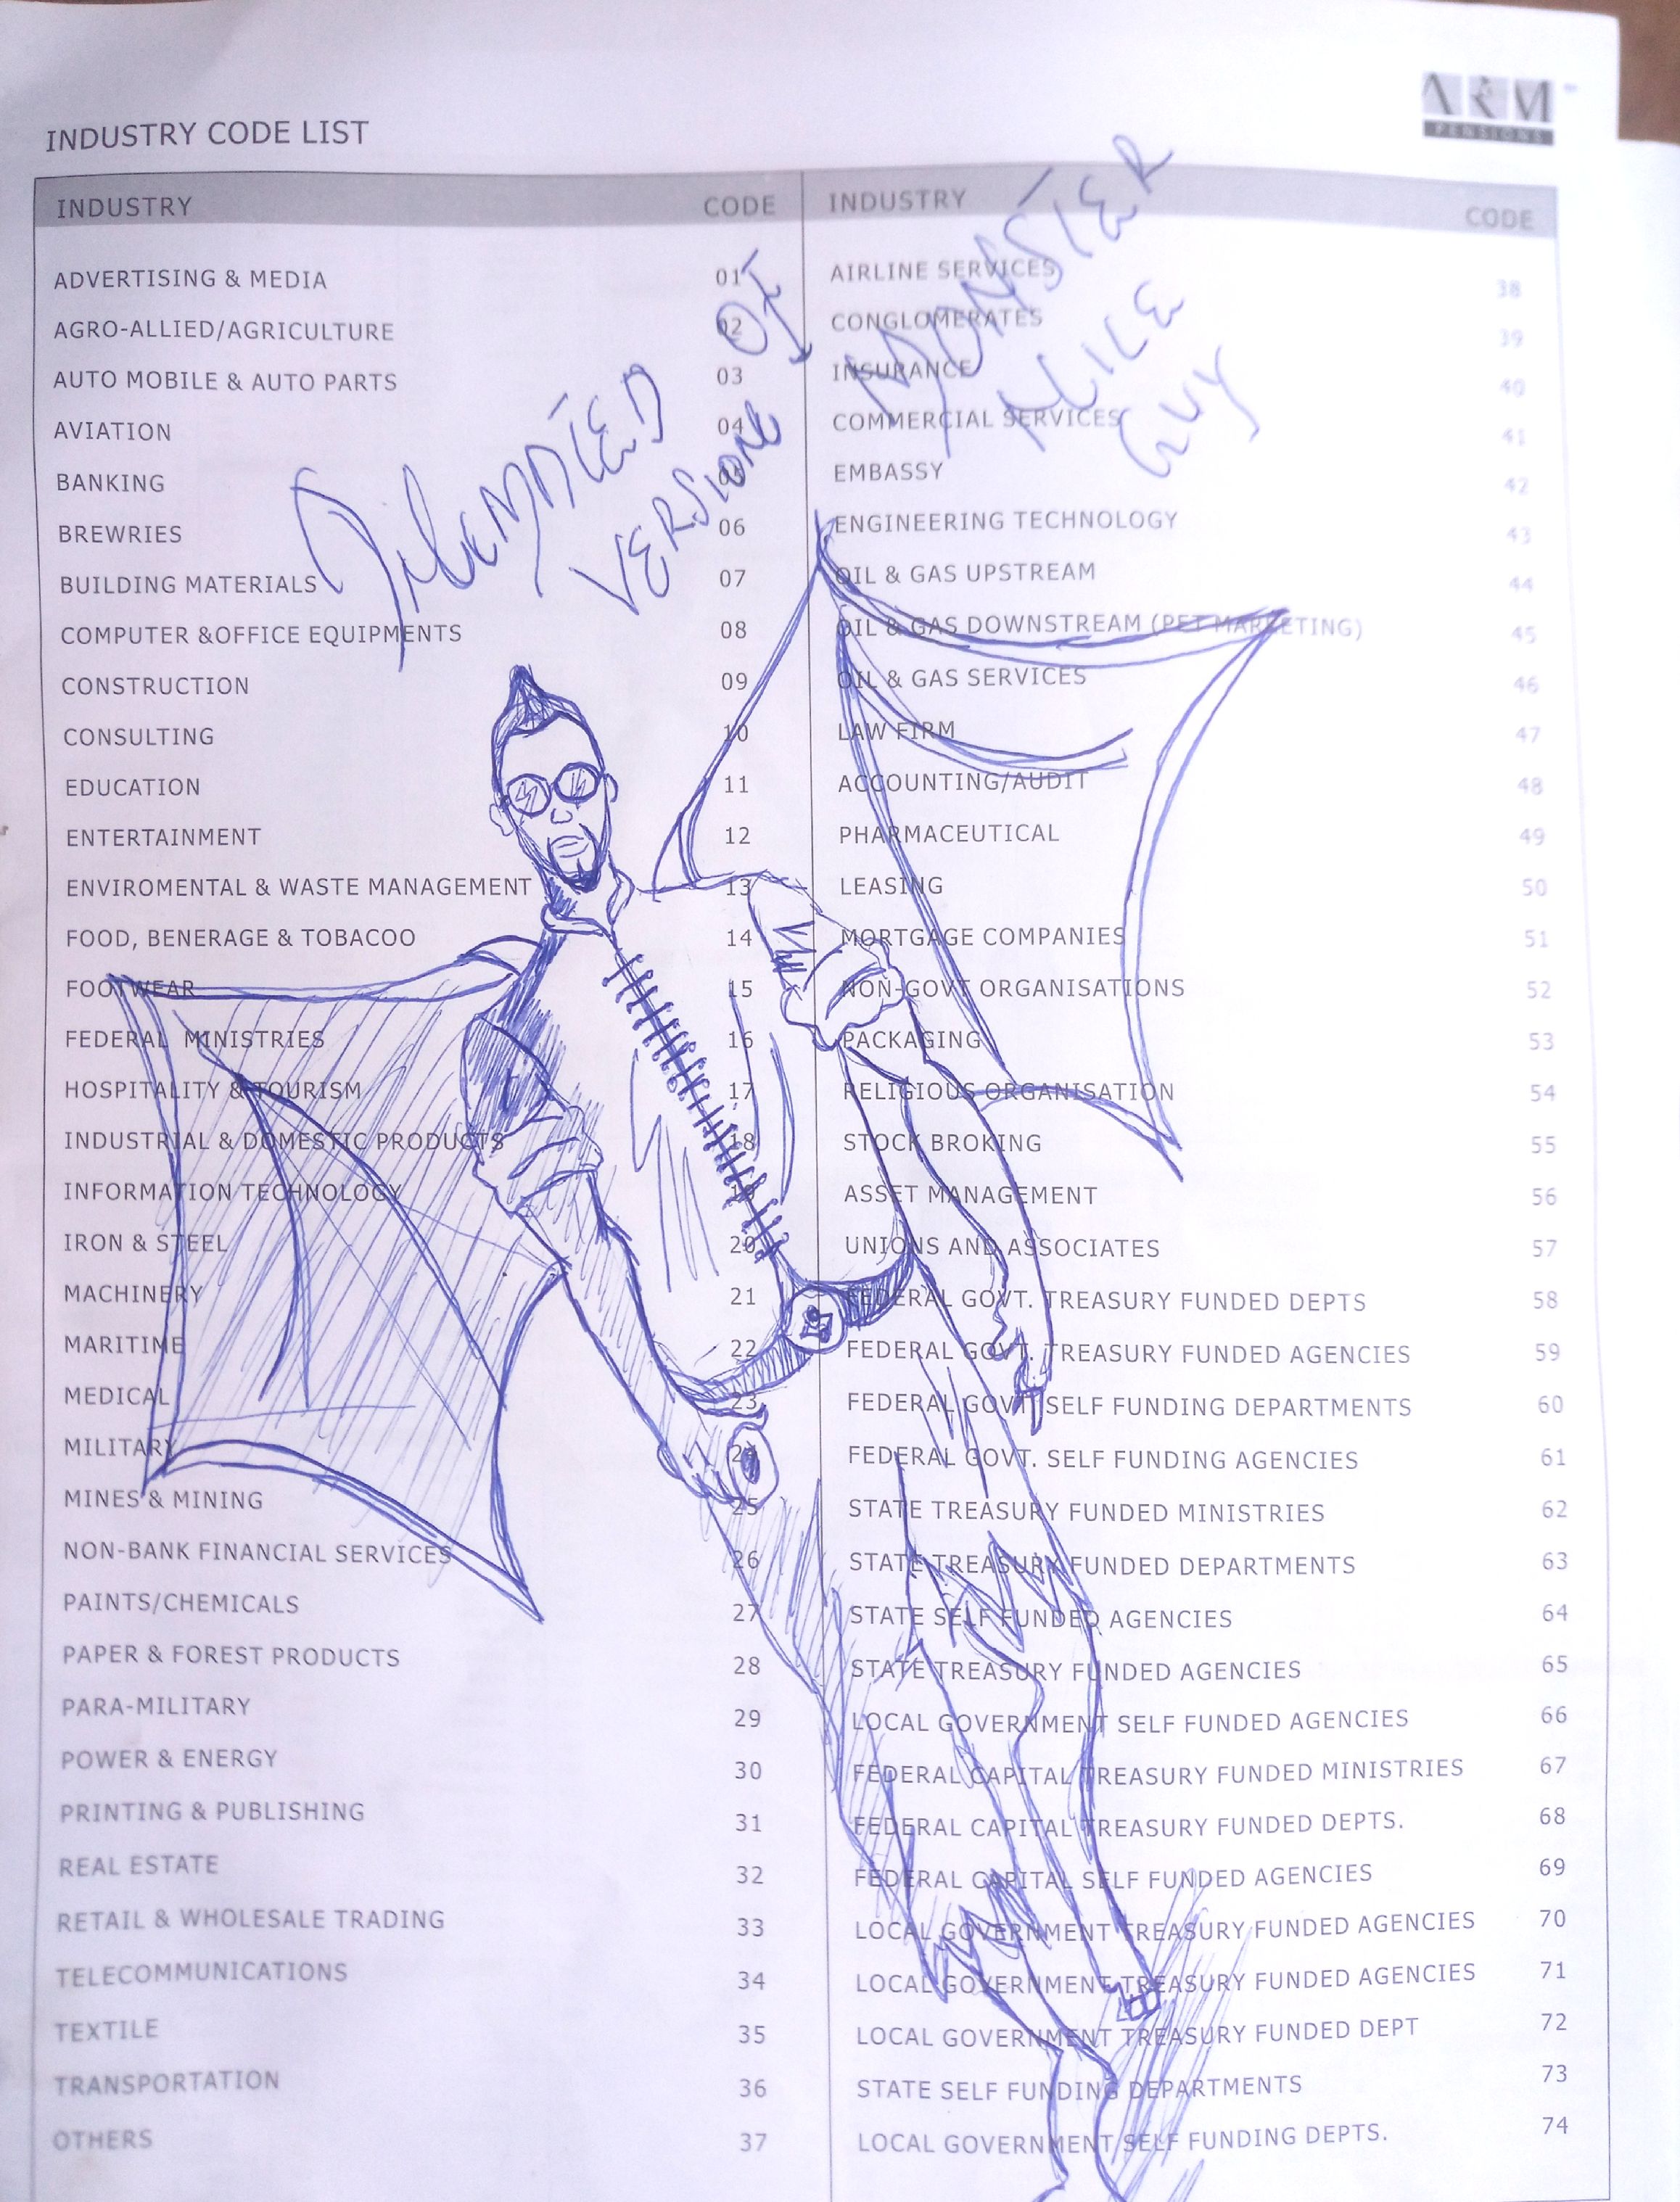 ARM
PENSIONS
INDUSTRY CODE LIST
INDUSTRY CODE INDUSTRY CODE
ADVERTISING & MEDIA 01 AIRLINE SERVICES 38
AGRO-ALLIED/AGRICULTURE 02 CONGLOMERATES 39
AUTO MOBILE & AUTO PARTS 03 INSURANCE 40
AVIATION 04 COMMERCIAL SERVICES 41
BANKING 05 EMBASSY 42
BREWRIES 06 ENGINEERING TECHNOLOGY 43
BUILDING MATERIALS 07 OIL & GAS UPSTREAM 44
COMPUTER &OFFICE EQUIPMENTS 08 OIL & GAS DOWNSTREAM (PET MARKETING) 45
CONSTRUCTION 09 OIL & GAS SERVICES 46
CONSULTING 10 LAW FIRM 47
EDUCATION 11 ACCOUNTING/AUDIT 48
ENTERTAINMENT 12 PHARMACEUTICAL 49
ENVIROMENTAL & WASTE MANAGEMENT 13 LEASING 50
FOOD, BENERAGE & TOBACOO 14 MORTGAGE COMPANIES 51
FOOTWEAR 15 NON-GOVT ORGANISATIONS 52
FEDERAL MINISTRIES 16 PACKAGING 53
HOSPITALITY & TOURISM 17 RELIGIOUS ORGANISATION 54
INDUSTRIAL & DOMESTIC PRODUCTS 18 STOCK BROKING 55
INFORMATION TECHNOLOGY 19 ASSET MANAGEMENT 56
IRON & STEEL 20 UNIONS AND ASSOCIATES 57
MACHINERY 21 FEDERAL GOVT. TREASURY FUNDED DEPTS 58
MARITIME 22 FEDERAL GOVT. TREASURY FUNDED AGENCIES 59
MEDICAL 23 FEDERAL GOVT SELF FUNDING DEPARTMENTS 60
MILITARY 24 FEDERAL GOVT. SELF FUNDING AGENCIES 61
MINES & MINING 25 STATE TREASURY FUNDED MINISTRIES 62
NON-BANK FINANCIAL SERVICES 26 STATE TREASURY FUNDED DEPARTMENTS 63
PAINTS/CHEMICALS 27 STATE SELF FUNDED AGENCIES 64
PAPER & FOREST PRODUCTS 28 STATE TREASURY FUNDED AGENCIES 65
PARA-MILITARY 29 LOCAL GOVERNMENT SELF FUNDED AGENCIES 66
POWER & ENERGY 30 FEDERAL CAPITAL TREASURY FUNDED MINISTRIES 67
PRINTING & PUBLISHING 31 FEDERAL CAPITAL TREASURY FUNDED DEPTS. 68
REAL ESTATE 32 FEDERAL CAPITAL SELF FUNDED AGENCIES 69
RETAIL & WHOLESALE TRADING 33 LOCAL GOVERNMENT TREASURY FUNDED AGENCIES 70
TELECOMMUNICATIONS 34 LOCAL GOVERNMENT TREASURY FUNDED AGENCIES 71
TEXTILE 35 LOCAL GOVERNMENT TREASURY FUNDED DEPT 72
TRANSPORTATION 36 STATE SELF FUNDING DEPARTMENTS 73
OTHERS 37 LOCAL GOVERNMENT SELF FUNDING DEPTS. 74
VERSION
MONSTER
GUY